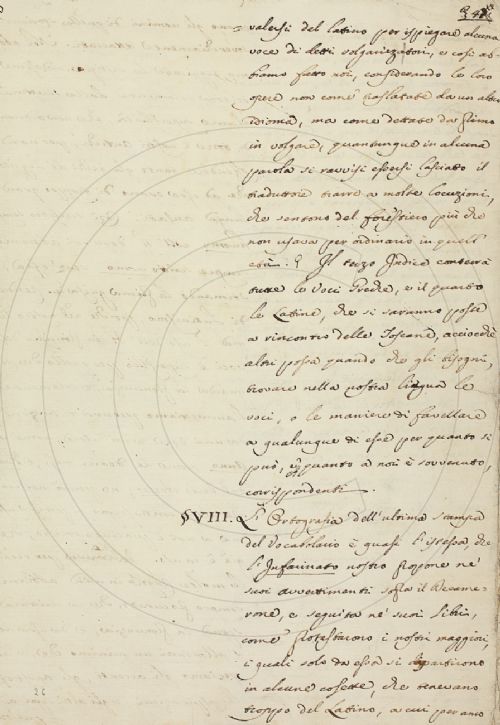 valersi del latino per ispiegare alcuna
voce di detti volgarizzatori, e così ab-
biamo fatto noi, considerando le loro
opere non come traslatate da un altro
idioma, ma come dettate da primo
in volgare, quantunque in alcuna
parola si ravvisi essersi lasciato il
traduttore trarre a molte locuzioni,
che sentono del forestiero più che
non usava per ordinario in quell'
età. Il terzo Indice conterrà
tutte le Voci Greche, e il quarto
le Latine, che si saranno poste
a rincontro delle Toscane, acciocchè
altri possa quando che gli bisogni,
trovare nella nostra lingua le
voci, o le maniere di favellare
a qualunque di esse per quanto si
può, e per quanto a noi è sovvenuto,
corrispondenti.
§VIII. L' Ortografia dell'ultima stampa
del Vocabolario è quasi l'istessa, che
l'Infarinato nostro propose ne'
suoi avvertimenti sopra il Decame-
rone, e seguita ne' suoi libri,
come protestarono i nostri maggiori,
i quali solo da essa si dipartirono
in alcune cosette, che tenevano
troppo del Latino, a cui per anco
26